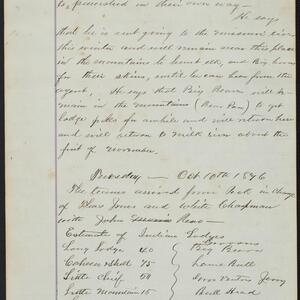 to, punished in their own way —
He says
that he is not going to the
this winter and will remain near this place
in the mountains to hunt elk, and Big horn
for their skins, until he can hear from the
agent, He says that Big Bear will re-
main in the mountains (Bear Paw) to get
lodge poles for awhile and will return here
and will return to Milk river about the
first of november.
Tuesday — Oct 10th 1876
The teams arrived from Peck in charge
of Jones and White Chapman
with John Reno —
Estimate of Indian Lodges
Long Lodge 40 Big Bear
Calico Shell 75 Lame Bull
Little Chief 50
Little Mountain 15 Bull Head